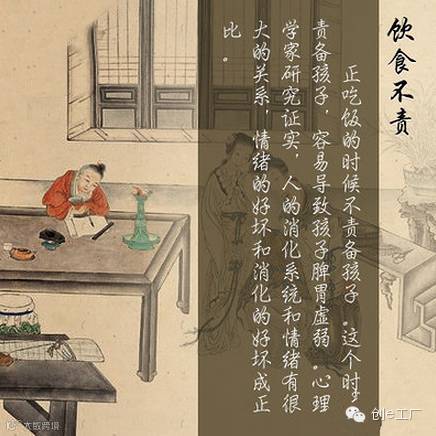 饮食不责
正吃饭的时候不责备孩子。这个时
责备孩子，容易导致孩子脾胃虚弱。心理
学家研究证实，人的消化系统和情绪有很
大的关系，情绪的好坏和消化的好坏成正
比。
创e工厂
大数跨境